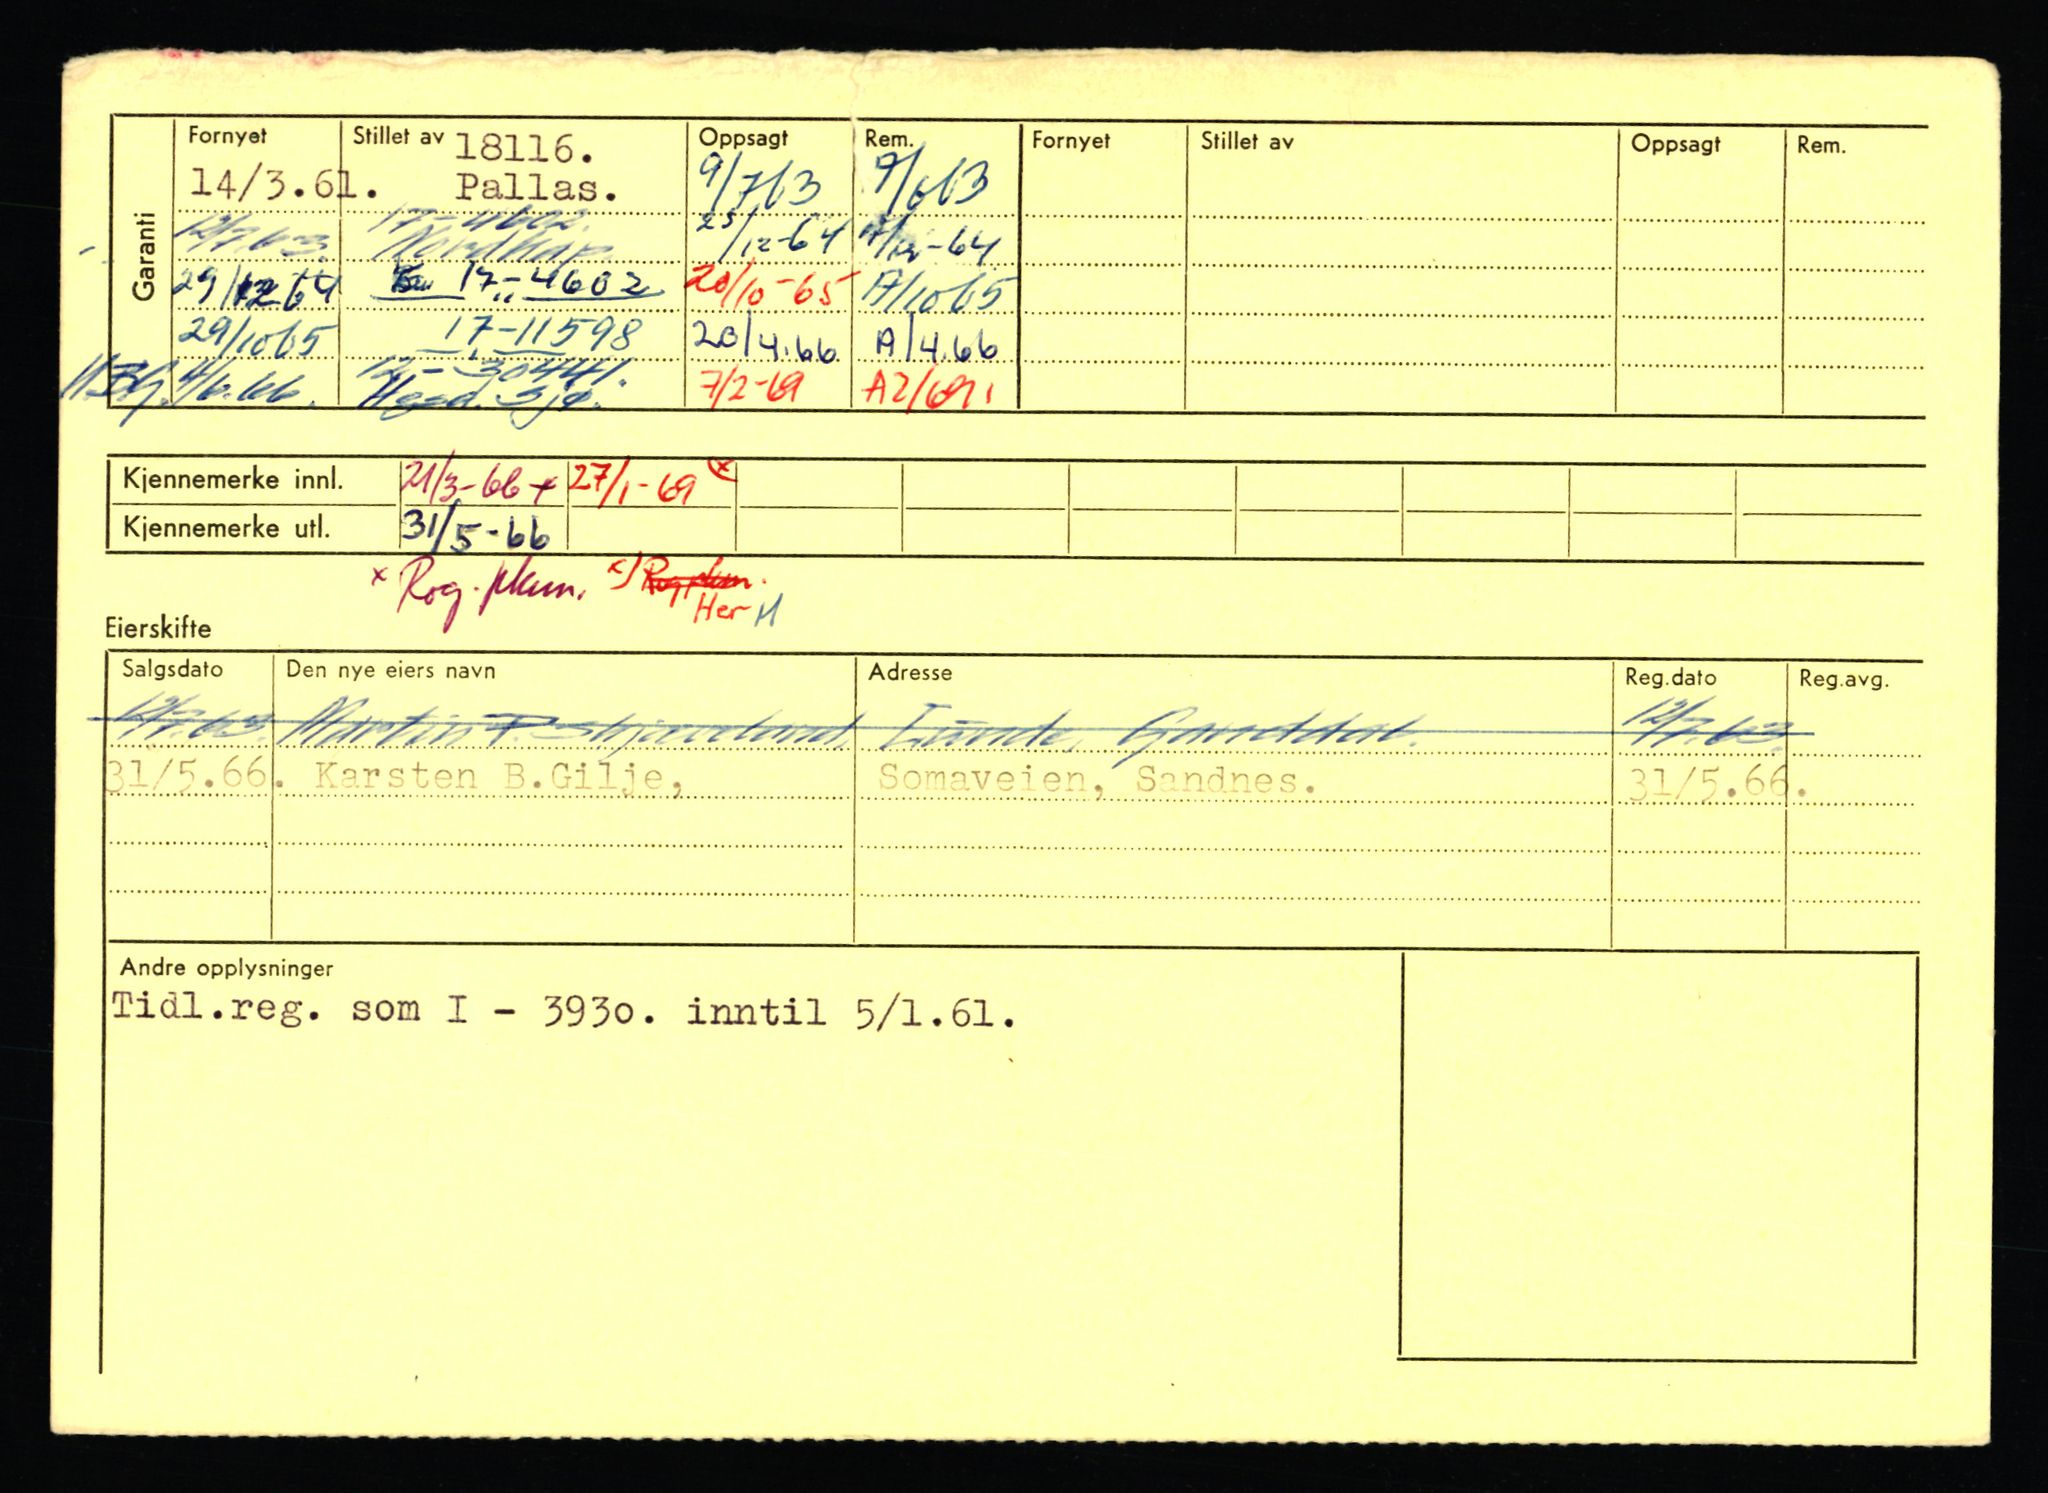 Garanti
Fornyet Stillet av Oppsagt Rem. Fornyet Stillet av Oppsagt Rem.
18116.
14/3.61. Pallas. 9/7 63 9/6 63
12/7.63. 17-4602. 23/12-64 /12-64
Nordkap.
29/12 64 17-4602 20/10-65 A/10 65
29/10 65 17-11598 20/4.66 A/4.66
4/6.66. 12-30441. 7/2-69 A2/69
Sjø.
Kjennemerke innl. 21/3-66 x 27/1-69 x
Kjennemerke utl. 31/5-66
x Rog. x)
Her
Eierskifte
Salgsdato Den nye eiers navn Adresse Reg.dato Reg.avg.
12/7.63. Martin P. Skjæveland, Lunde, Ganddal. 12/7.63.
31/5.66. Karsten B.Gilje, Somaveien, Sandnes. 31/5.66.
Andre opplysninger
Tidl.reg. som I - 3930. inntil 5/1.61.